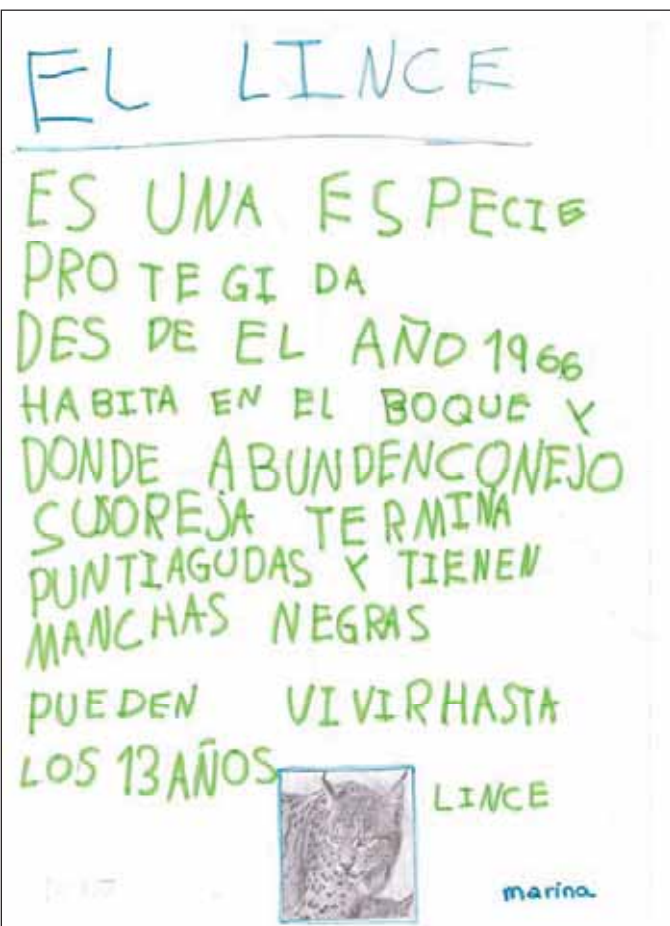 EL LINCE
ES UNA ESPECIE
PROTEGIDA
DESDE EL AÑO 1966
HABITA EN EL BOQUE Y
DONDE ABUNDENCONEJO
SUSOREJA TERMINA
PUNTIAGUDAS Y TIENEN
MANCHAS NEGRAS
PUEDEN VIVIRHASTA
LOS 13 AÑOS
LINCE
marina